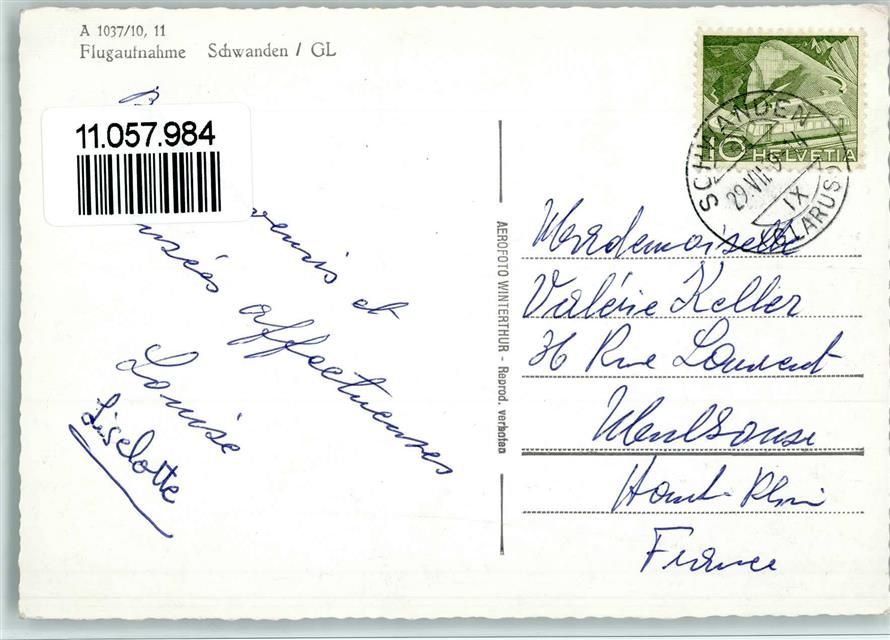 A 1037/10, 11
Flugaufnahme Schwanden / GL
11.057.984
venirs et
affectueuses
Louise
Liselotte
AEROFOTO WINTERTHUR - Reprod. verboten
10 HELVETIA
SCHWANDEN
29.VII.
IX
(GLARUS)
Mademoiselle
Valérie Keller
36 Rue Laurent
Mulhouse
Haut-Rhin
France